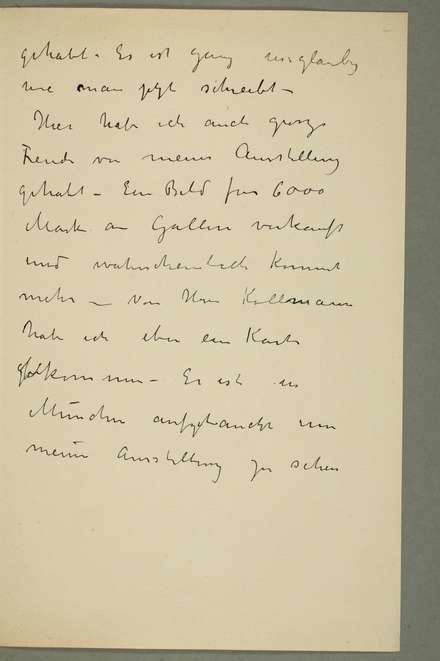 gehabt - Es ist ganz unglaublig
wie man jetzt schreibt -
Hier habe ich auch grosze
Freude von meiner Ausstellung
gehabt - Ein Bild fur 6000
Mark an Gallerie verkauft
und wahrscheinlich kommt
mehr - Von Herrn Kollmann
habe ich eben ein Karte
bekommen - Er ist in
München aufgetaucht um
meine Ausstellung zu sehen